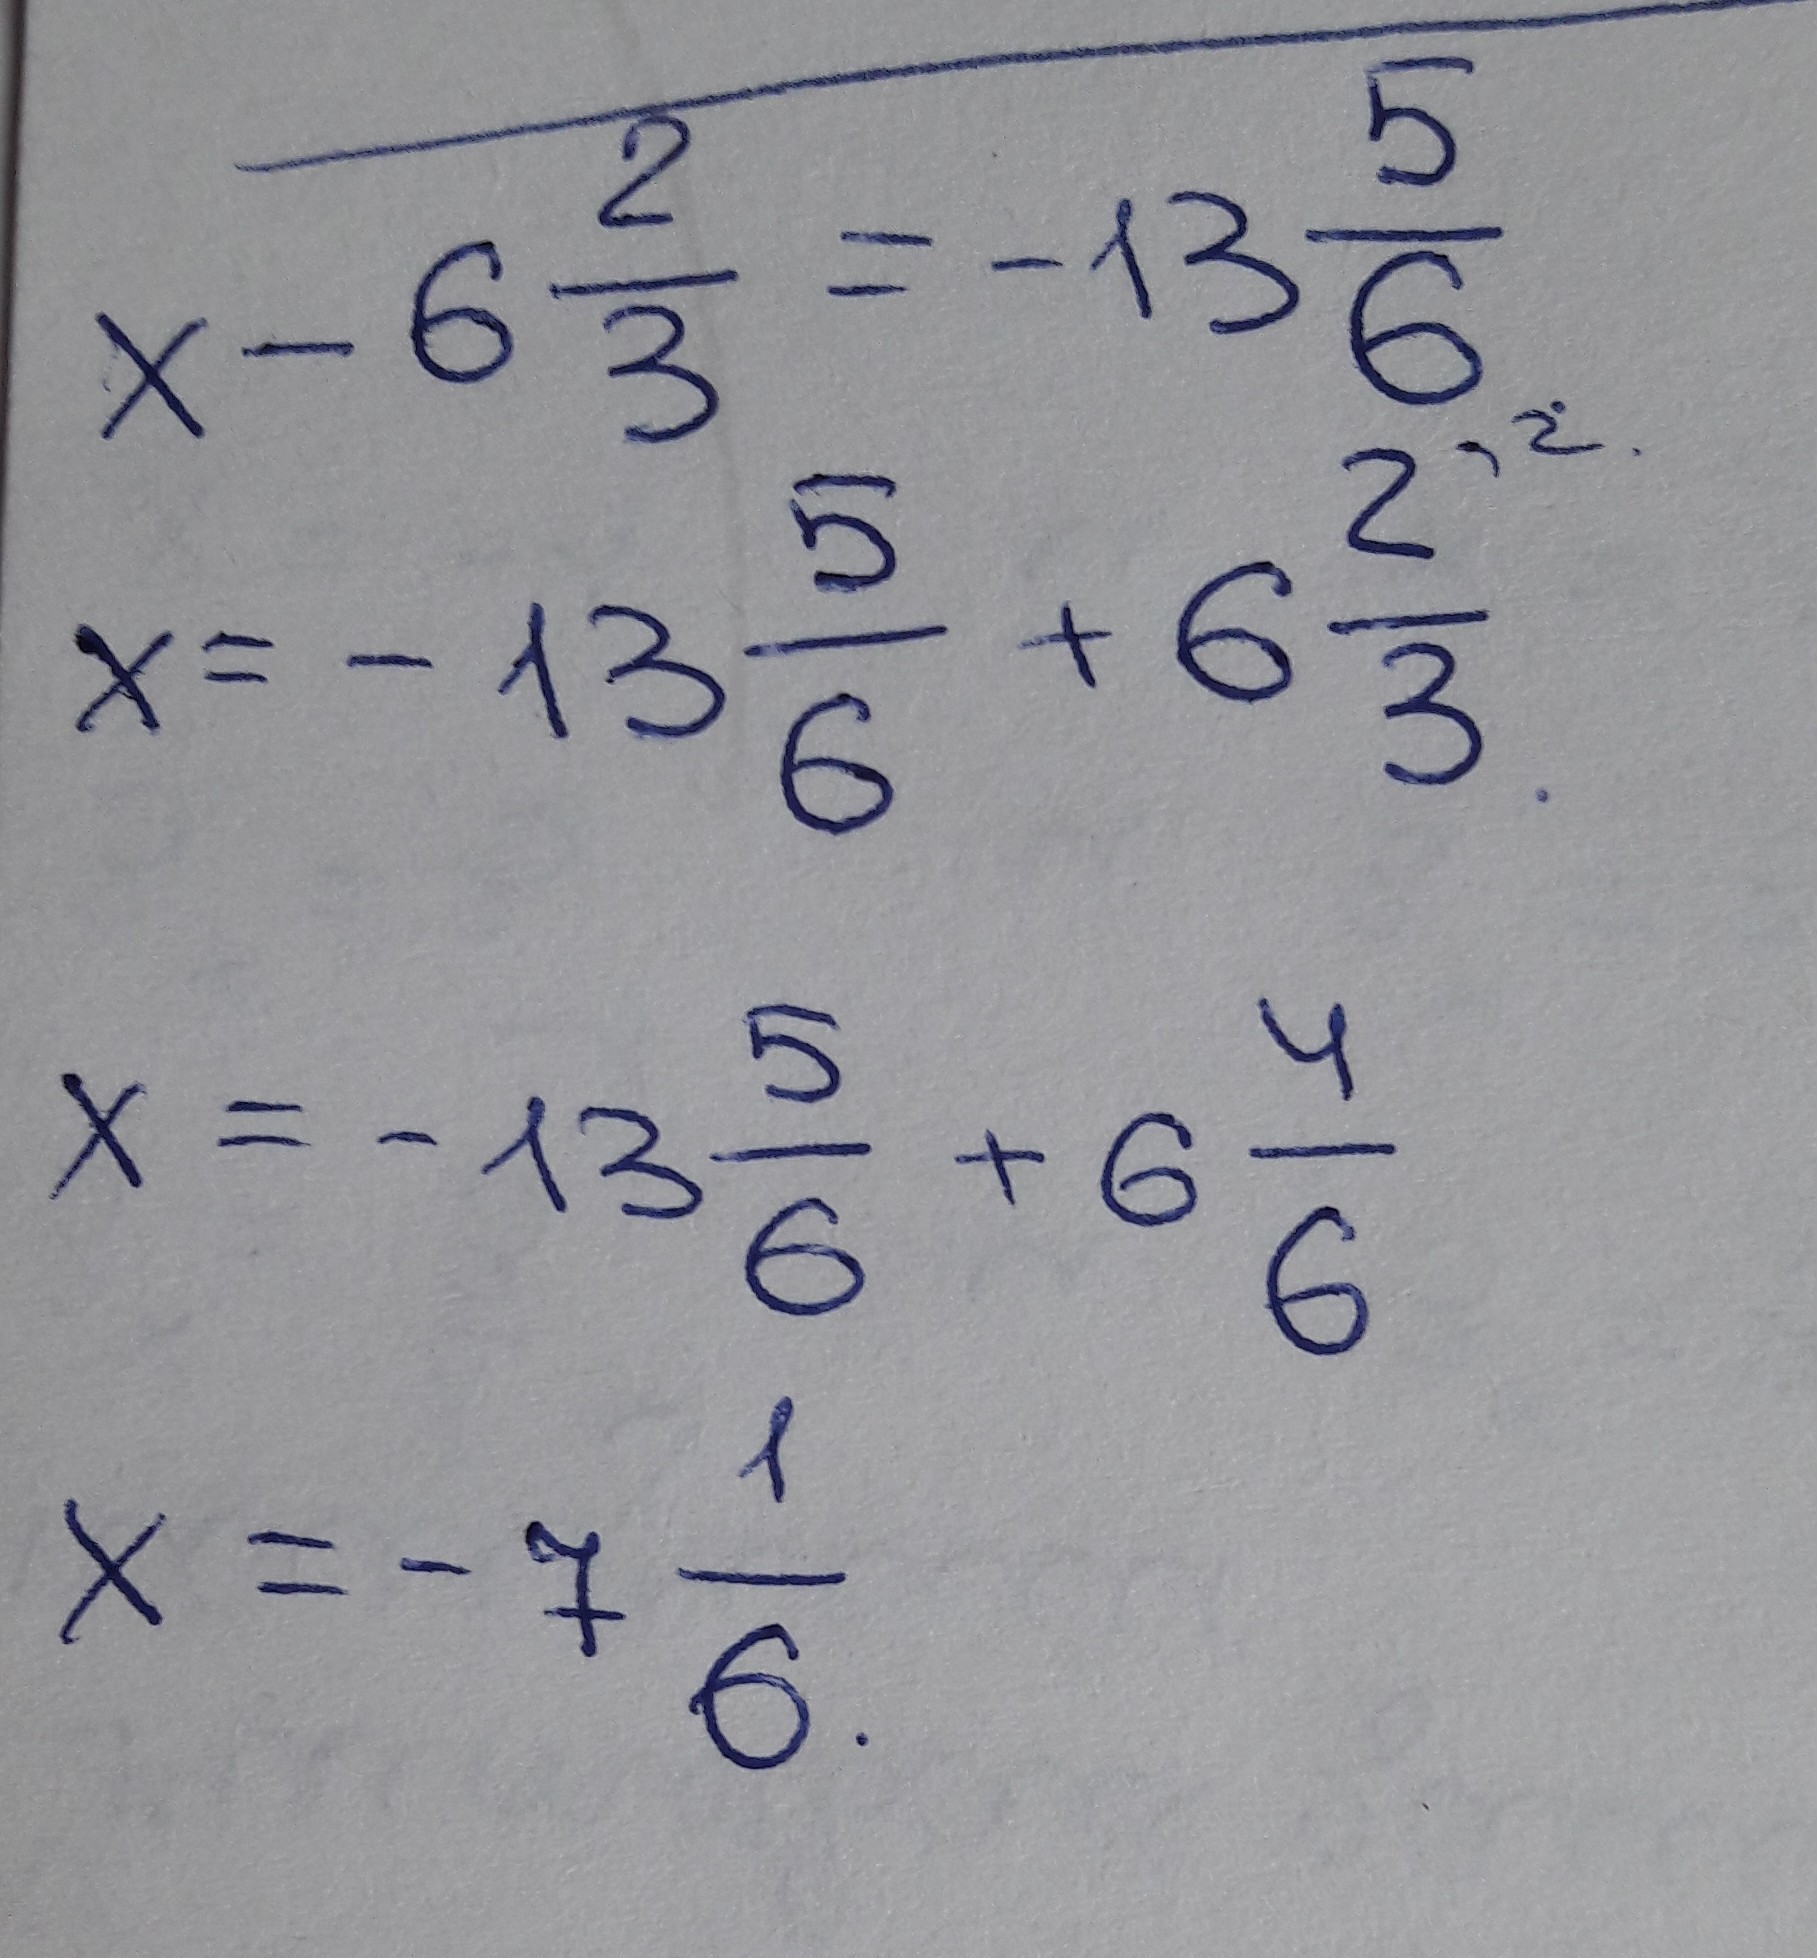 x - 6 2/3 = -13 5/6
x = -13 5/6 + 6 2/3 \2.
x = -13 5/6 + 6 4/6
x = -7 1/6.